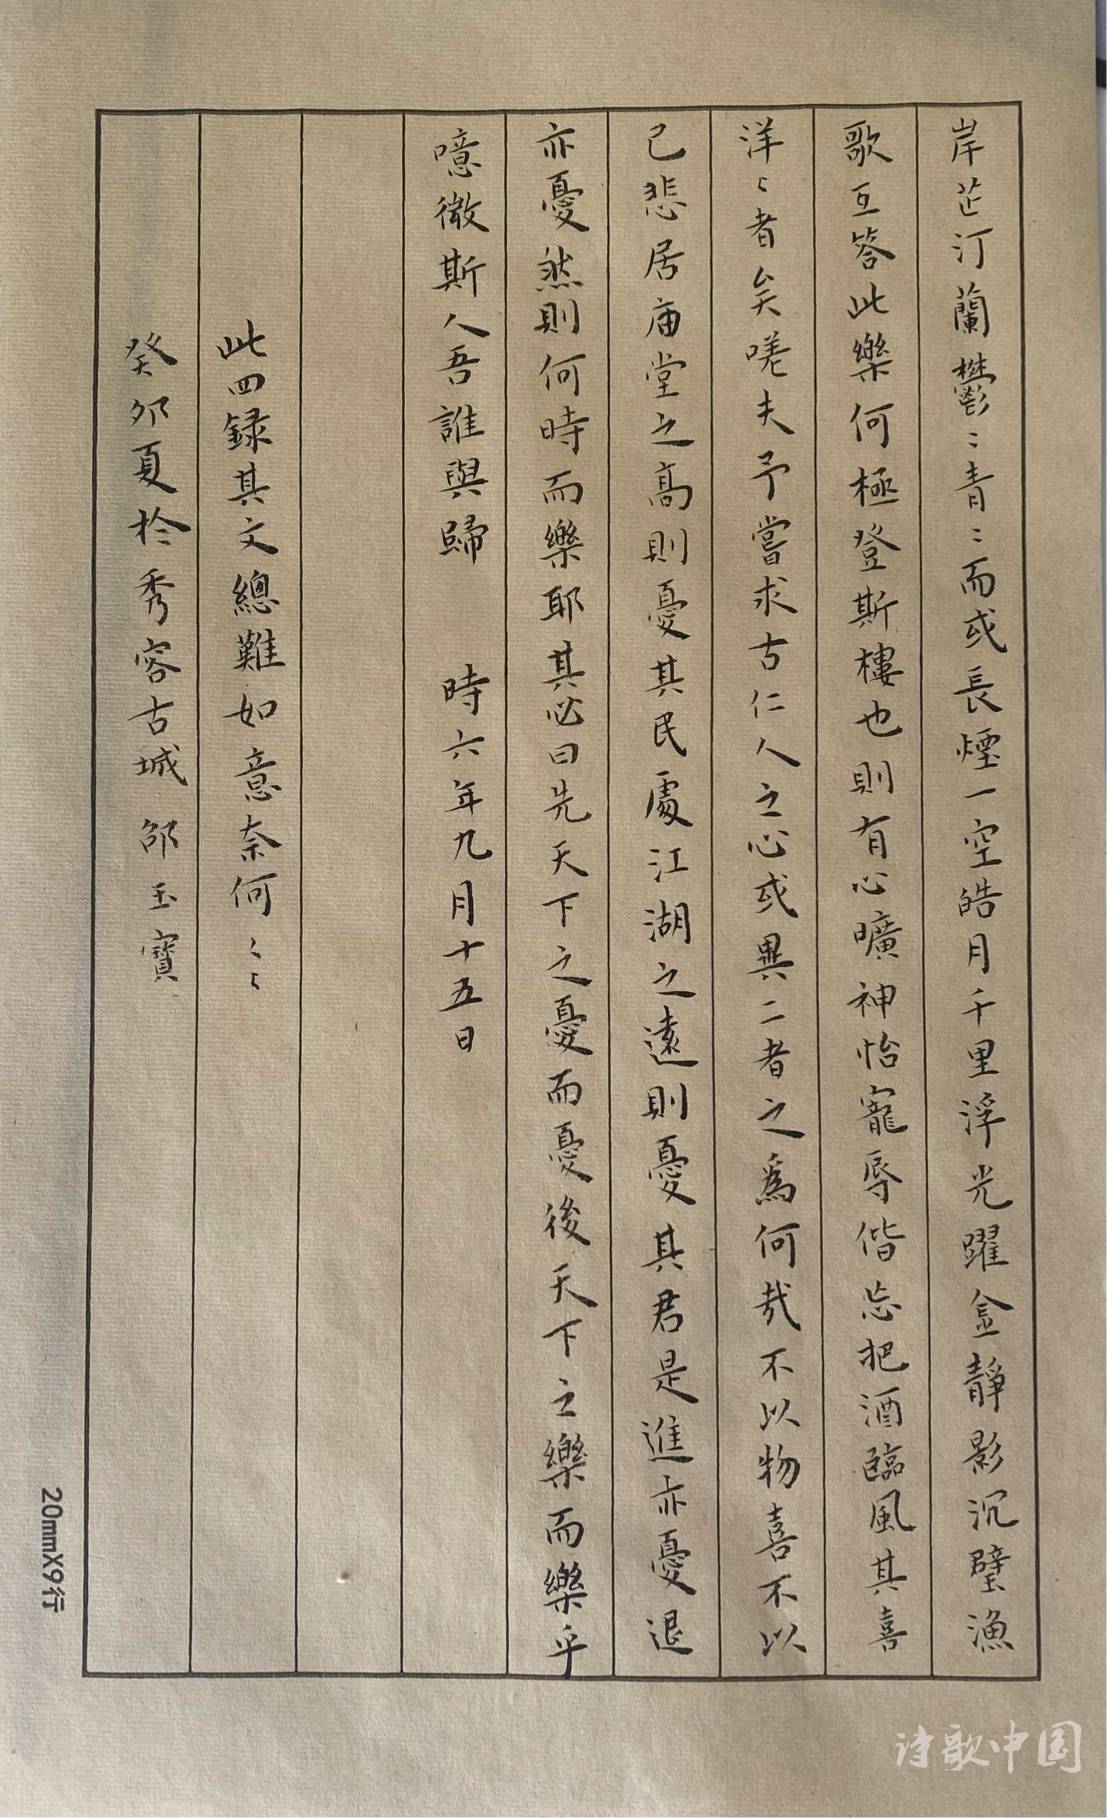 岸芷汀蘭鬱〻青〻而或長煙一空皓月千里浮光躍金靜影沉璧漁
歌互答此樂何極登斯樓也則有心曠神怡寵辱偕忘把酒臨風其喜
洋〻者矣嗟夫予嘗求古仁人之心或異二者之為何哉不以物喜不以
己悲居庙堂之高則憂其民處江湖之遠則憂其君是進亦憂退
亦憂然則何時而樂耶其必曰先天下之憂而憂後天下之樂而樂乎
噫微斯人吾誰與歸 時六年九月十五日
此四録其文總難如意奈何〻〻
癸卯夏於秀容古城 邵玉寶
20mmX9行
诗歌中国